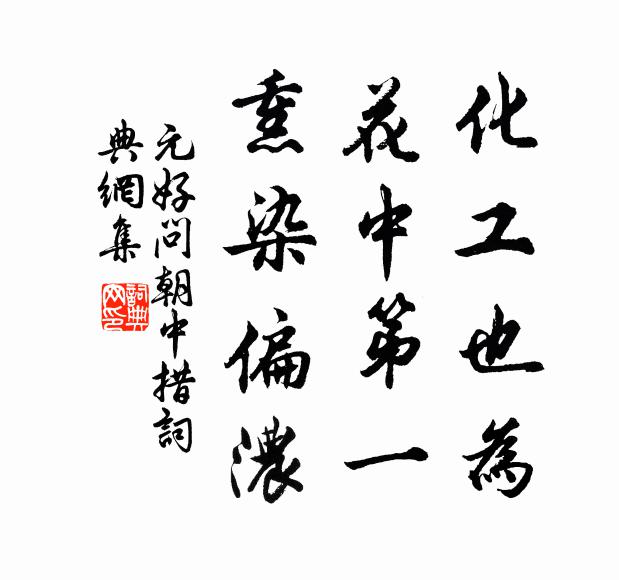 化工也為
花中第一
熏染偏濃
元好問朝中措詞
典網集
詞典網印